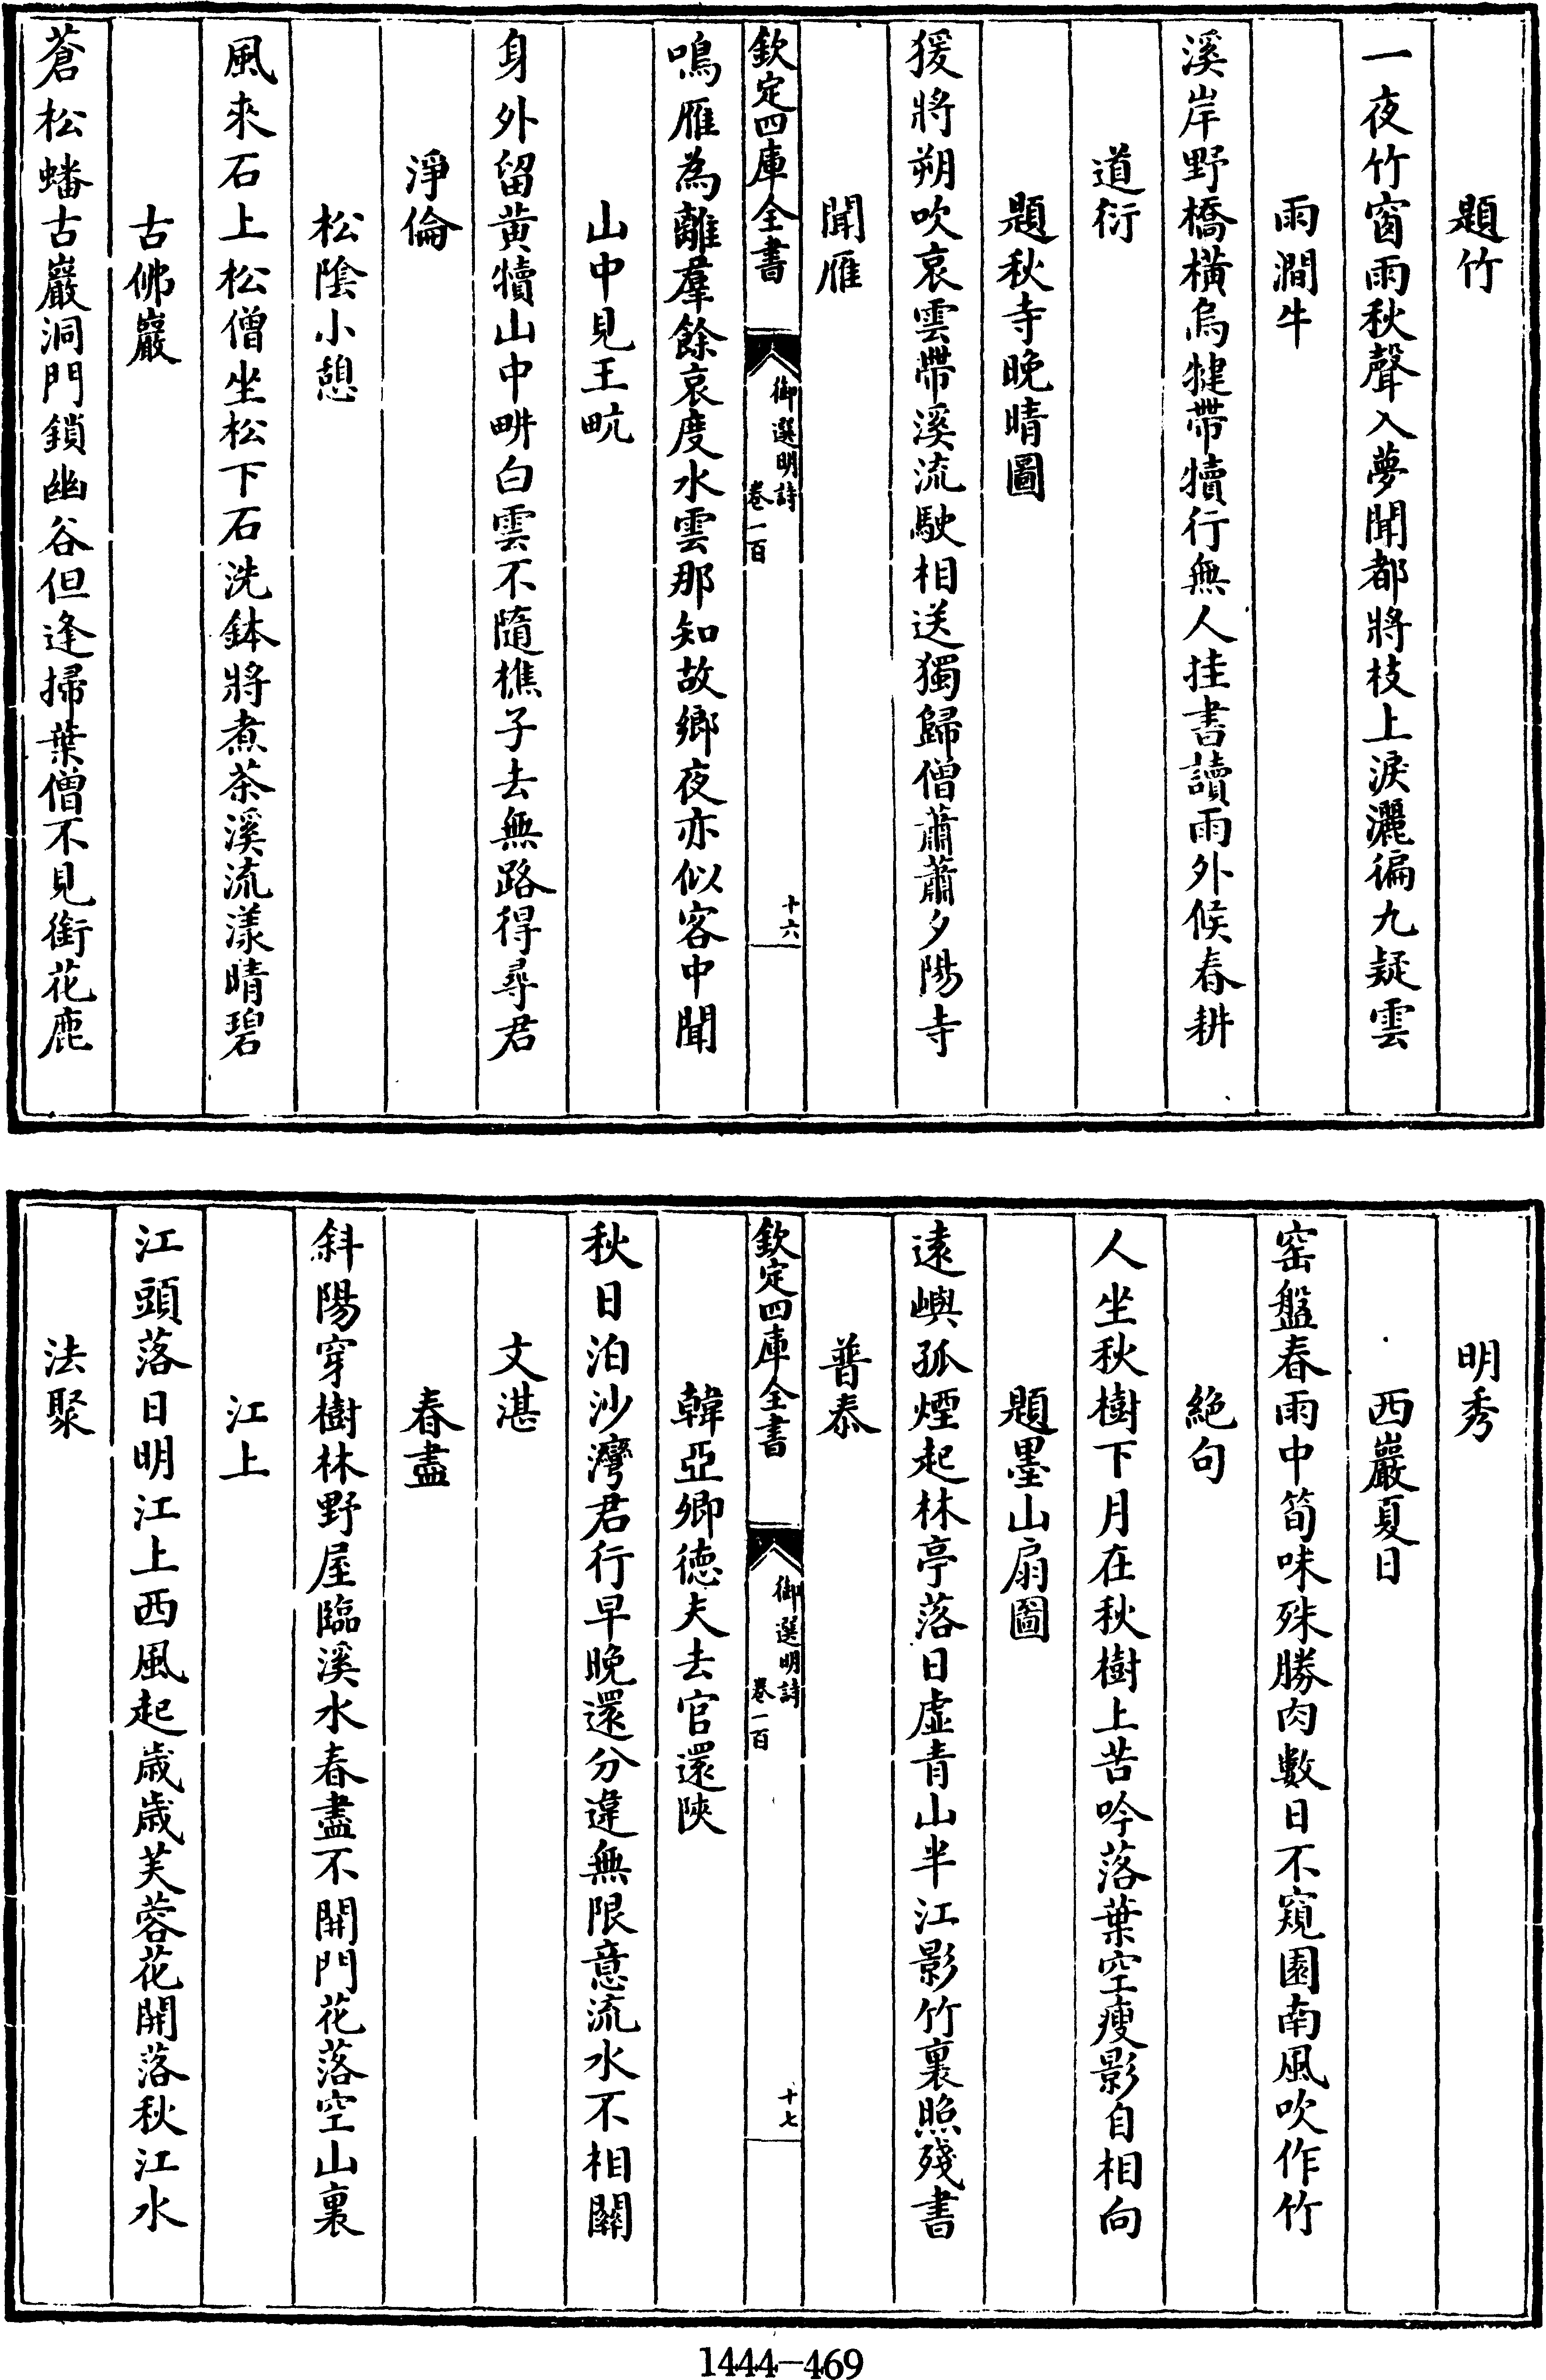 題竹
一夜竹窗雨秋聲入夢聞都將枝上淚灑徧九疑雲
雨澗牛
溪岸野橋橫烏犍帶犢行無人挂書讀雨外候春耕
道衍
題秋寺晚晴圖
猨將朔吹哀雲帶溪流駛相送獨歸僧蕭蕭夕陽寺
聞雁
欽定四庫全書
御選明詩
卷一百
十六
鳴雁為離羣餘哀度水雲那知故鄉夜亦似客中聞
山中見王甿
身外留黄犢山中畊白雲不隨樵子去無路得尋君
淨倫
松陰小憩
風來石上松僧坐松下石洗鉢將煮茶溪流漾晴碧
古佛巖
蒼松蟠古巖洞門鎖幽谷但逢掃葉僧不見銜花鹿
明秀
西巖夏日
窑盤春雨中筍味殊勝肉數日不窺園南風吹作竹
絕句
人坐秋樹下月在秋樹上苦吟落葉空瘦影自相向
題墨山扇圖
遠嶼孤煙起林亭落日虛青山半江影竹裏照殘書
普泰
欽定四庫全書
御選明詩
卷一百
十七
韓亞卿德夫去官還陝
秋日泊沙灣君行早晚還分違無限意流水不相關
文湛
春盡
斜陽穿樹林野屋臨溪水春盡不開門花落空山裏
江上
江頭落日明江上西風起歲歲芙蓉花開落秋江水
法聚
1444-469